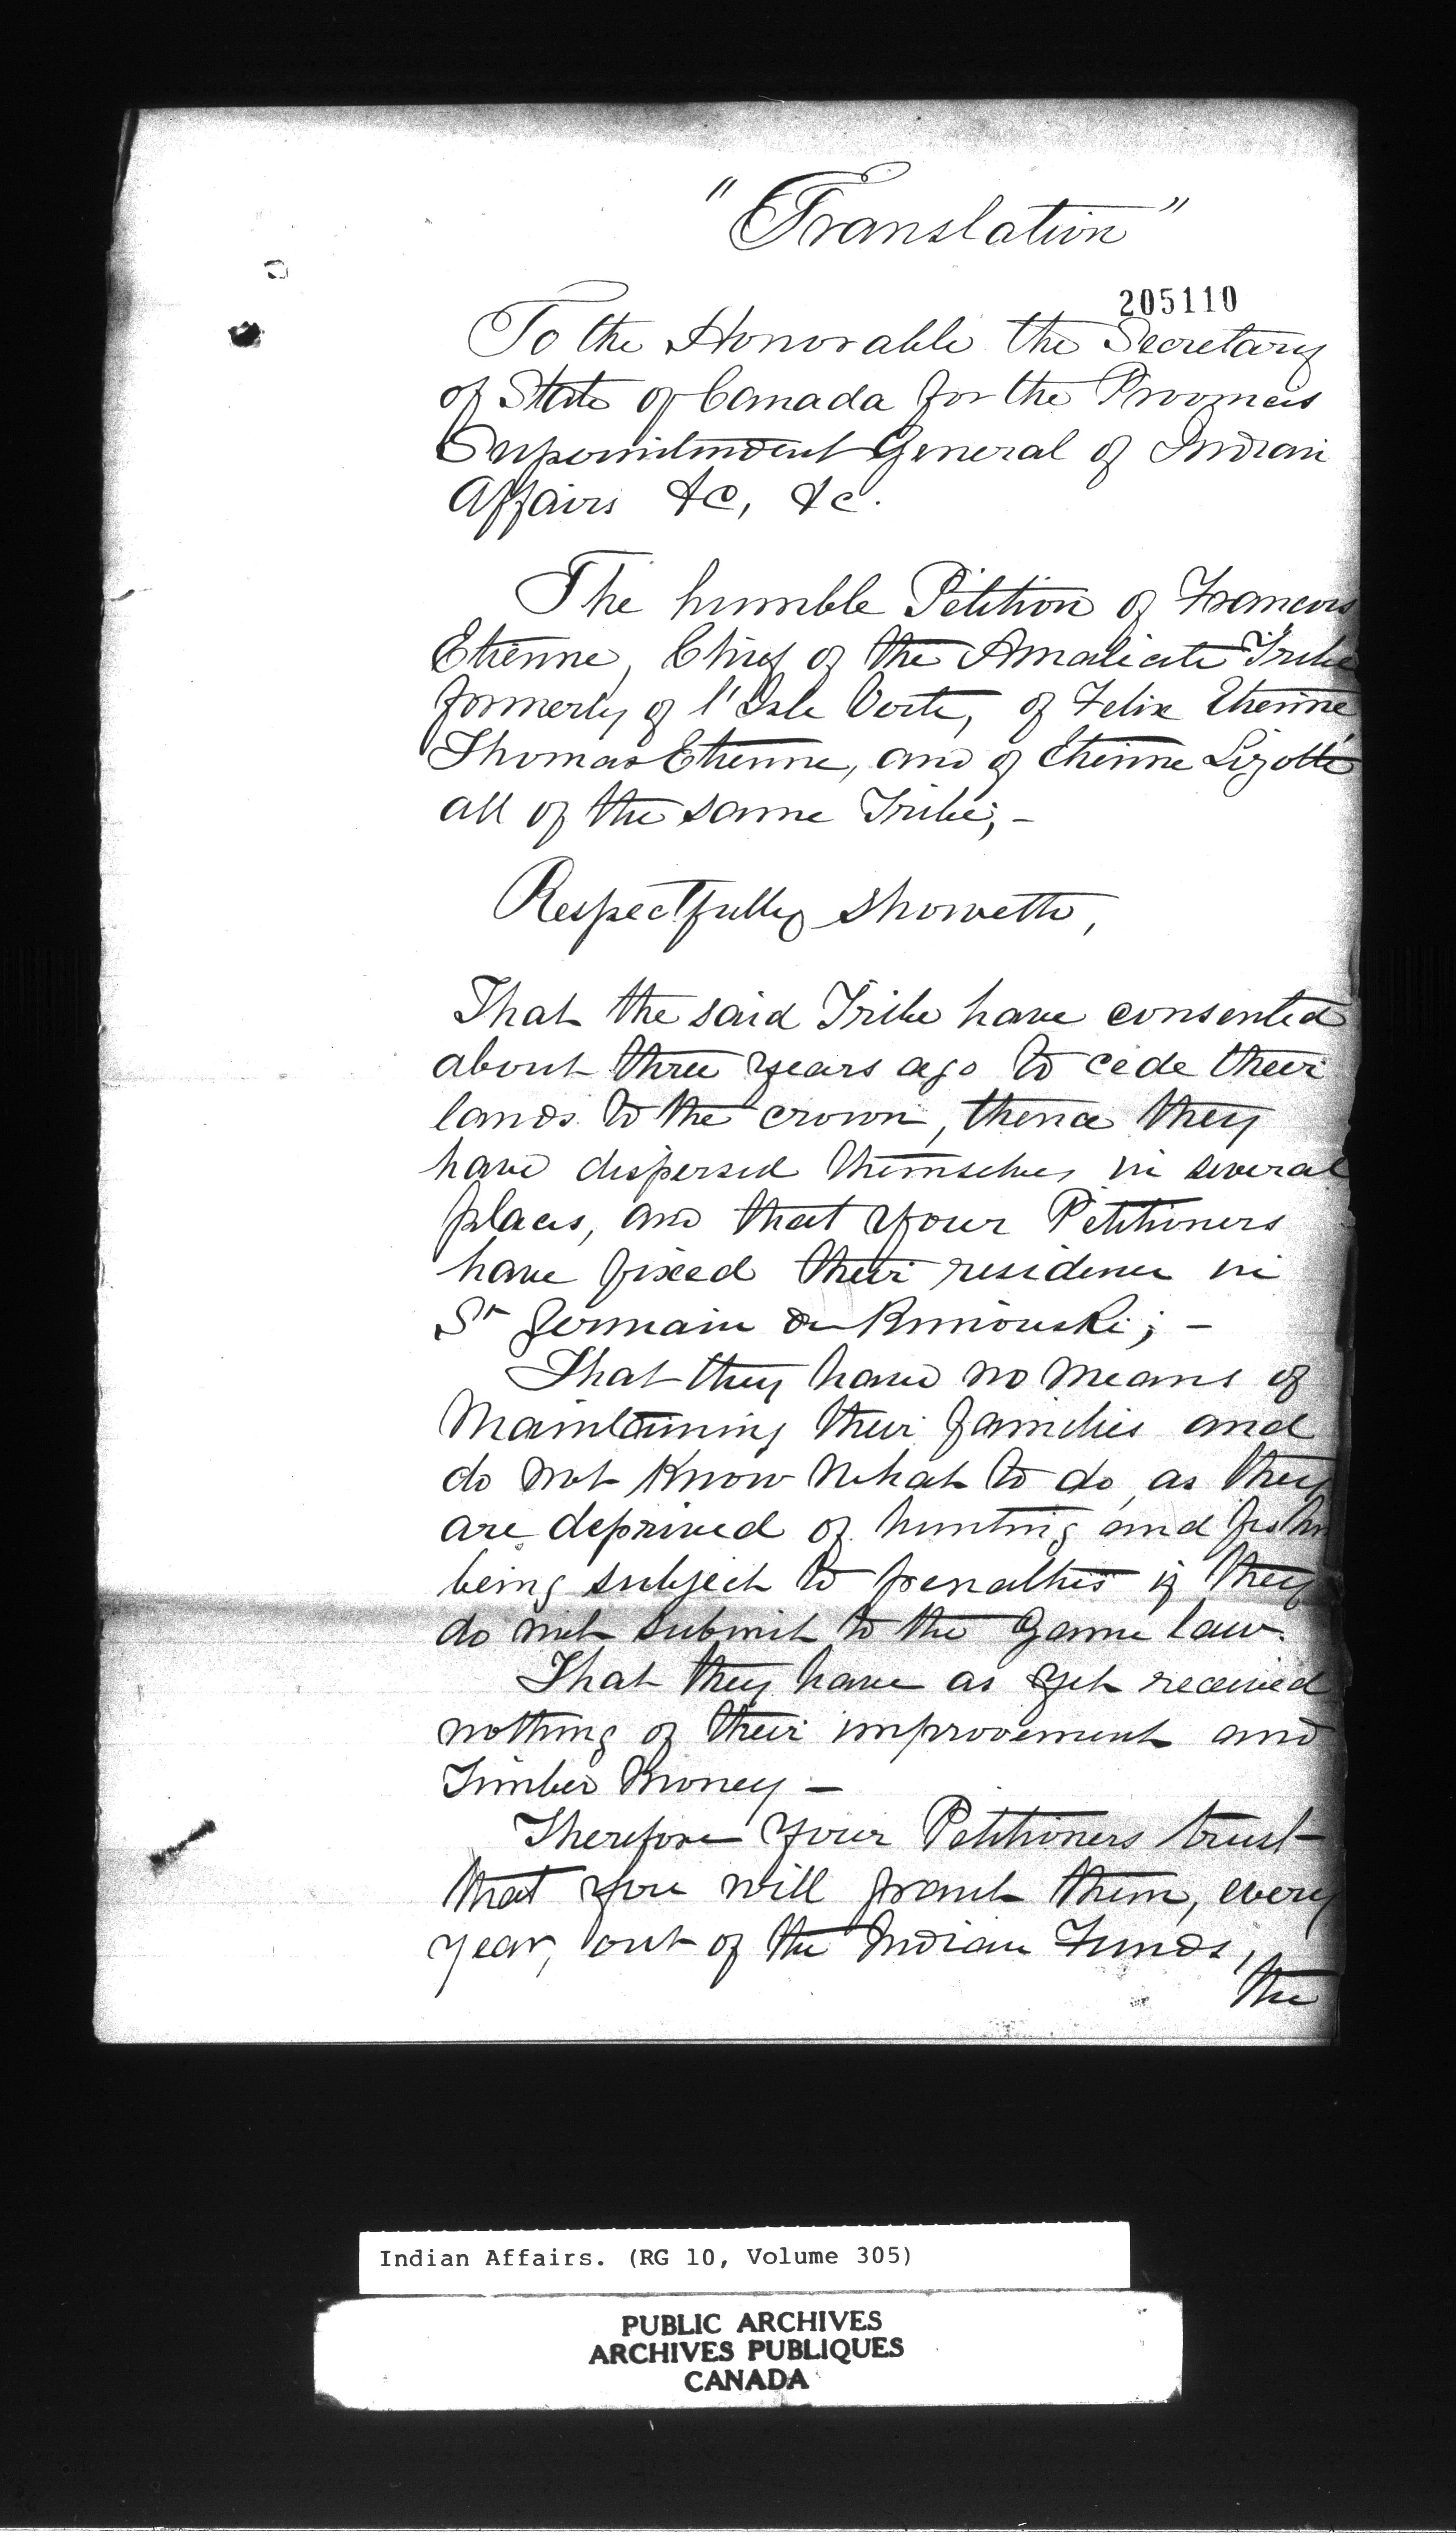 "Translation"
205110
To the Honorable the Secretary
of State of Canada for the Provinces
Superintendent General of Indian
Affairs &c, &c.
The humble Petition of Francois
Etienne, Chief of the Amalicite Tribe
formerly of l'Isle Verte, of Felix Etienne
Thomas Etienne, and of Etienne Lizotte
all of the same Tribe; -
Respectfully showeth,
That the said Tribe have consented
about three years ago to cede their
lands to the crown, thence they
have dispersed themselves in several
places, and that your Petitioners
have fixed their residence in
St Germain de Rimouski; -
That they have no means of
Maintaining their families and
do not know what to do, as they
are deprived of hunting and fishin
being subject to penalties if they
do not submit to the Game law.
That they have as yet received
nothing of their improvement and
Timber Money -
Therefore your Petitioners trust
that you will grant them, every
year, out of the Indian Funds,
the
Indian Affairs. (RG 10, Volume 305)
PUBLIC ARCHIVES
ARCHIVES PUBLIQUES
CANADA